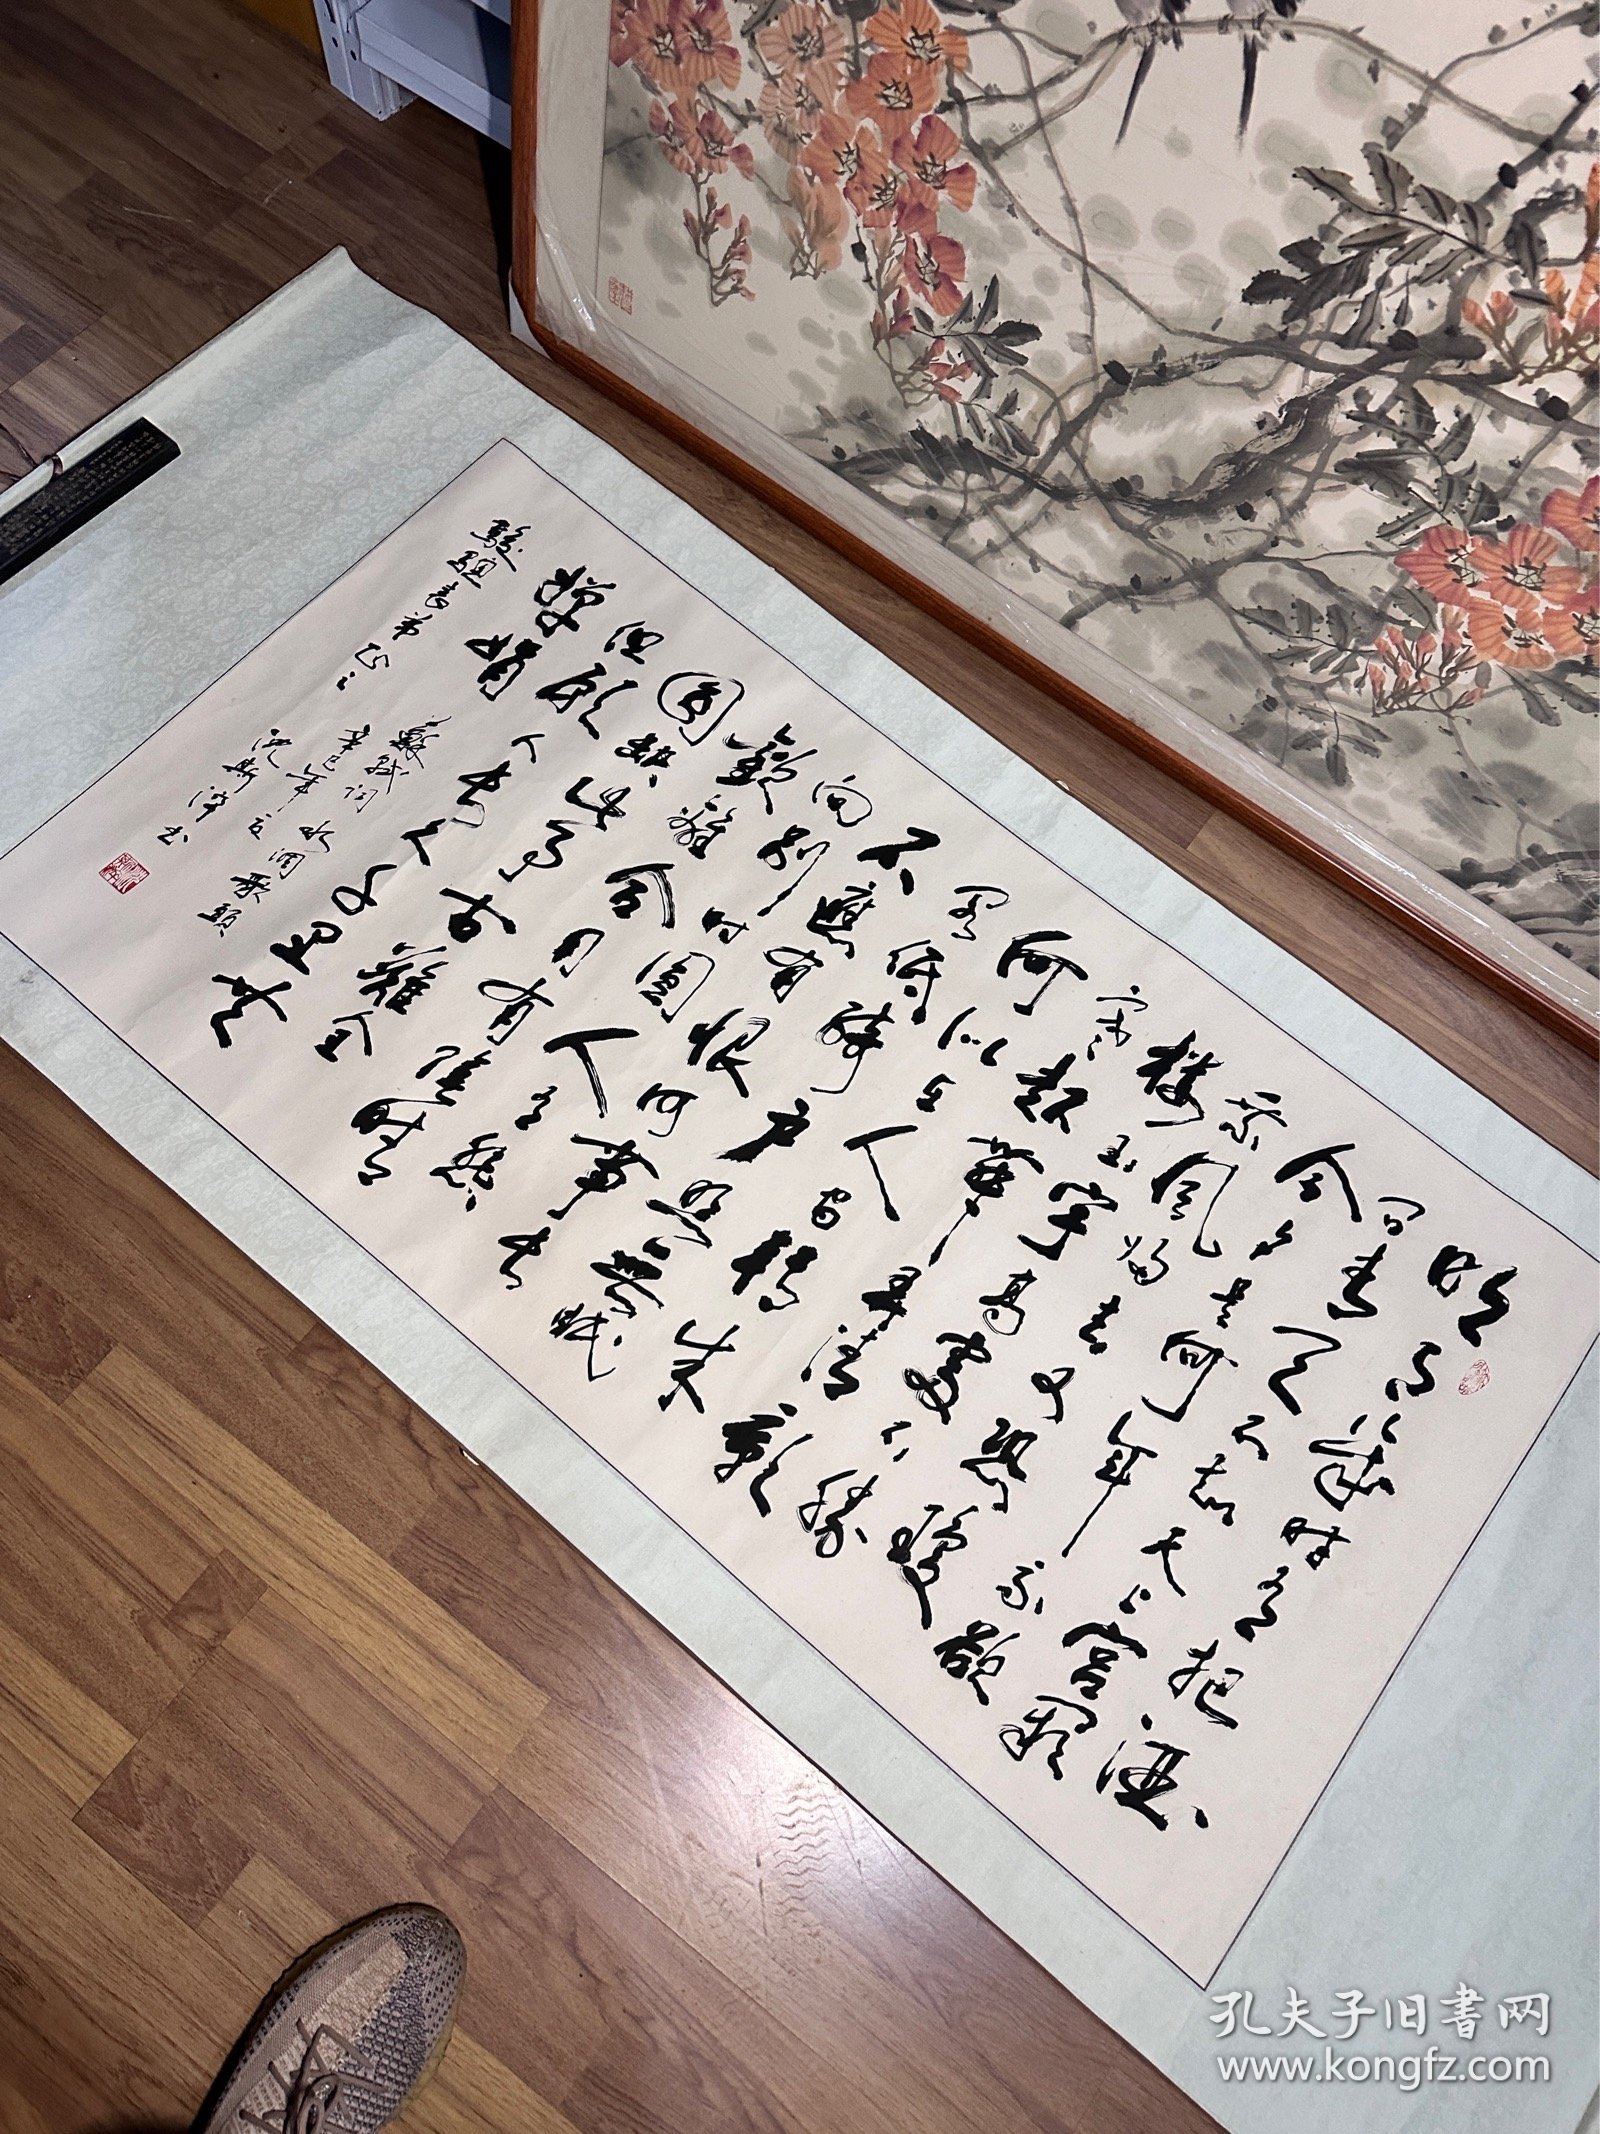 明月幾时有把酒
问青天不知天上宫阙
今夕是何年我欲
乘风归去又恐瓊
楼玉宇高處不勝
寒起舞弄清影
何似在人间转朱
阁低绮户照無眠
不應有恨何事长
向别时圓人有悲
歡離合月有陰晴
圆缺此事古難全
但願人长久千里共
嬋娟
苏轼词 水调歌头
辛巳年
孔夫子旧書网
www.kongfz.com